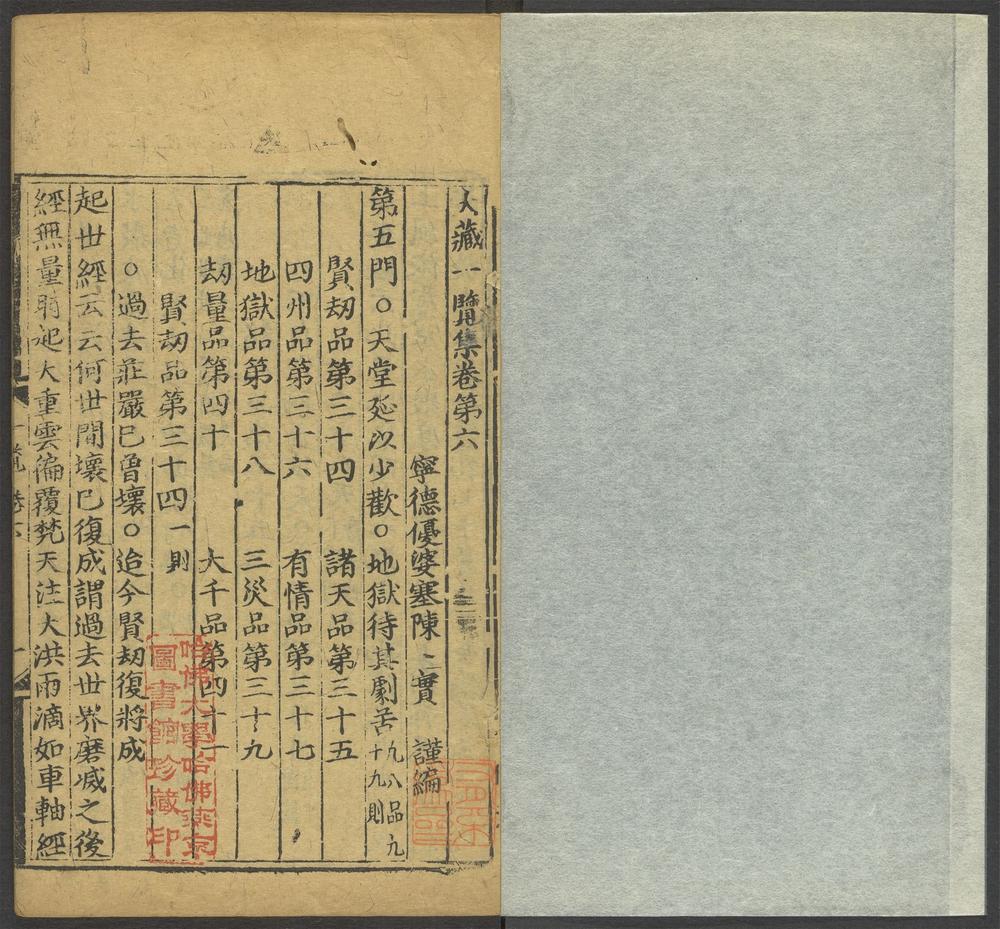 大藏一覽集卷第六
寧德優婆塞陳 實 謹編
第五門○天堂延以少歡○地獄待其劇苦 八品九十九則
賢劫品第三十四 諸天品第三十五
四州品第三十六 有情品第三十七
地獄品第三十八 三災品第三十九
劫量品第四十 大千品第四十一
賢劫品第三十四 一則
○過去莊嚴已曾壞○迨今賢劫復將成
起世經云云何世間壞已復成謂過去世界磨滅之後
經無量時起大重雲徧覆梵天注大洪雨滴如車軸經
一覽 卷六
一
哈佛大學哈佛燕京圖書館珍藏印